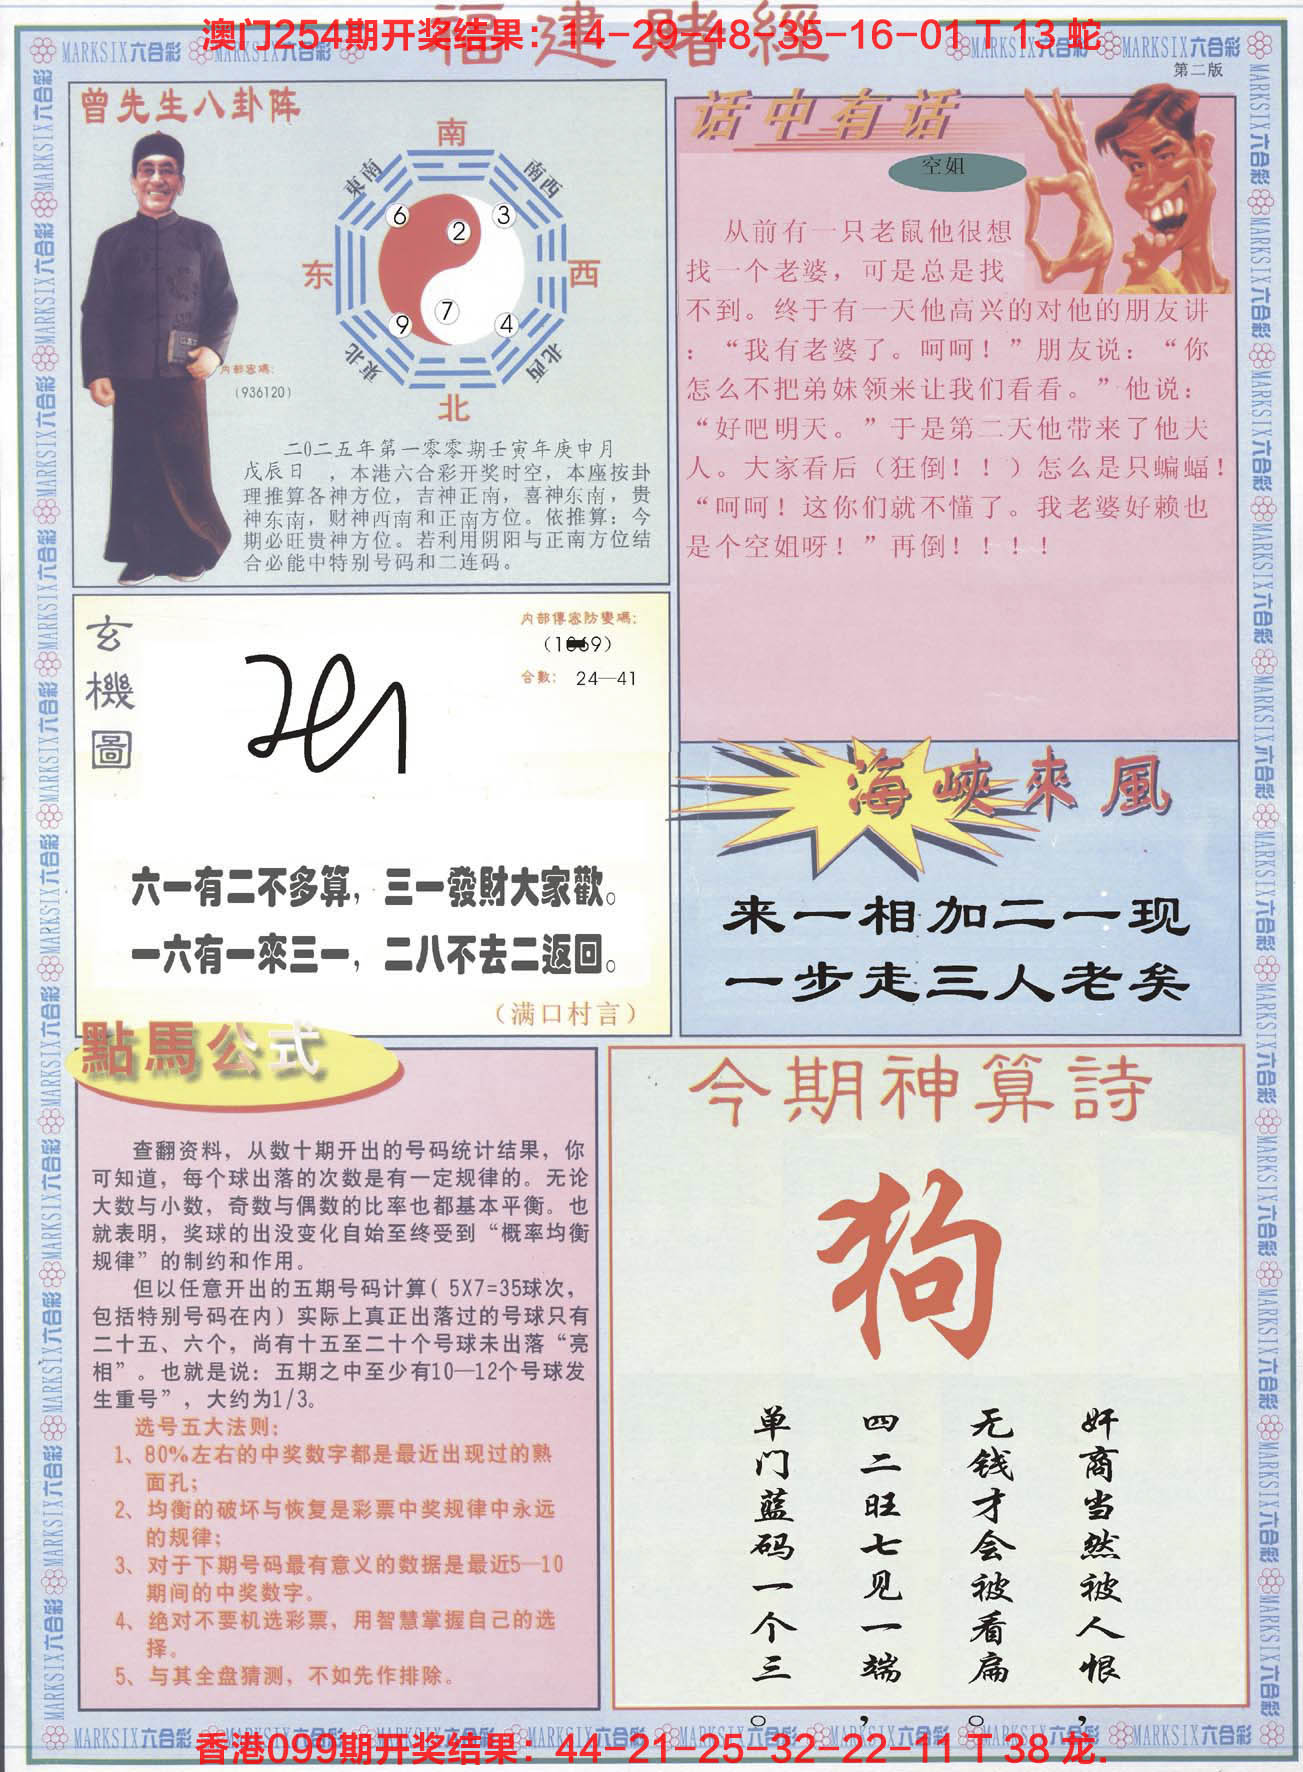 福建賭經
澳门254期开奖结果：14-29-48-35-16-01 T 13 蛇
MARKSIX六合彩
第二版
曾先生八卦阵
南
東南
南西
6
2
3
东
西
9
7
4
東北
北西
北
内部密碼：
(936120)
二0二五年第一零零期壬寅年庚申月
戊辰日 ，本港六合彩开奖时空，本座按卦
理推算各神方位，吉神正南，喜神东南，贵
神东南，财神西南和正南方位。依推算：今
期必旺贵神方位。若利用阴阳与正南方位结
合必能中特别号码和二连码。
话中有话
空姐
从前有一只老鼠他很想
找一个老婆，可是总是找
不到。终于有一天他高兴的对他的朋友讲
：“我有老婆了。呵呵！”朋友说：“你
怎么不把弟妹领来让我们看看。”他说：
“好吧明天。”于是第二天他带来了他夫
人。大家看后（狂倒！！）怎么是只蝙蝠！
“呵呵！这你们就不懂了。我老婆好赖也
是个空姐呀！”再倒！！！！
玄機圖
内部傳密防變碼：
合數： 24—41
六一有二不多算，三一發財大家歡。
一六有一來三一，二八不去二返回。
（满口村言）
海峽來風
来一相加二一现
一步走三人老矣
點馬公式
查翻资料，从数十期开出的号码统计结果，你
可知道，每个球出落的次数是有一定规律的。无论
大数与小数，奇数与偶数的比率也都基本平衡。也
就表明，奖球的出没变化自始至终受到“概率均衡
规律”的制约和作用。
但以任意开出的五期号码计算( 5X7=35球次，
包括特别号码在内）实际上真正出落过的号球只有
二十五、六个，尚有十五至二十个号球未出落“亮
相”。也就是说：五期之中至少有10—12个号球发
生重号”，大约为1/3。
选号五大法则：
1、80%左右的中奖数字都是最近出现过的熟
面孔；
2、均衡的破坏与恢复是彩票中奖规律中永远
的规律；
3、对于下期号码最有意义的数据是最近5—10
期间的中奖数字。
4、绝对不要机选彩票，用智慧掌握自己的选
择。
5、与其全盘猜测，不如先作排除。
今期神算詩
狗
奸商当然被人恨，
无钱才会被看扁。
四二旺七见一端，
单门蓝码一个三。
香港099期开奖结果：44-21-25-32-22-11 T 38 龙.